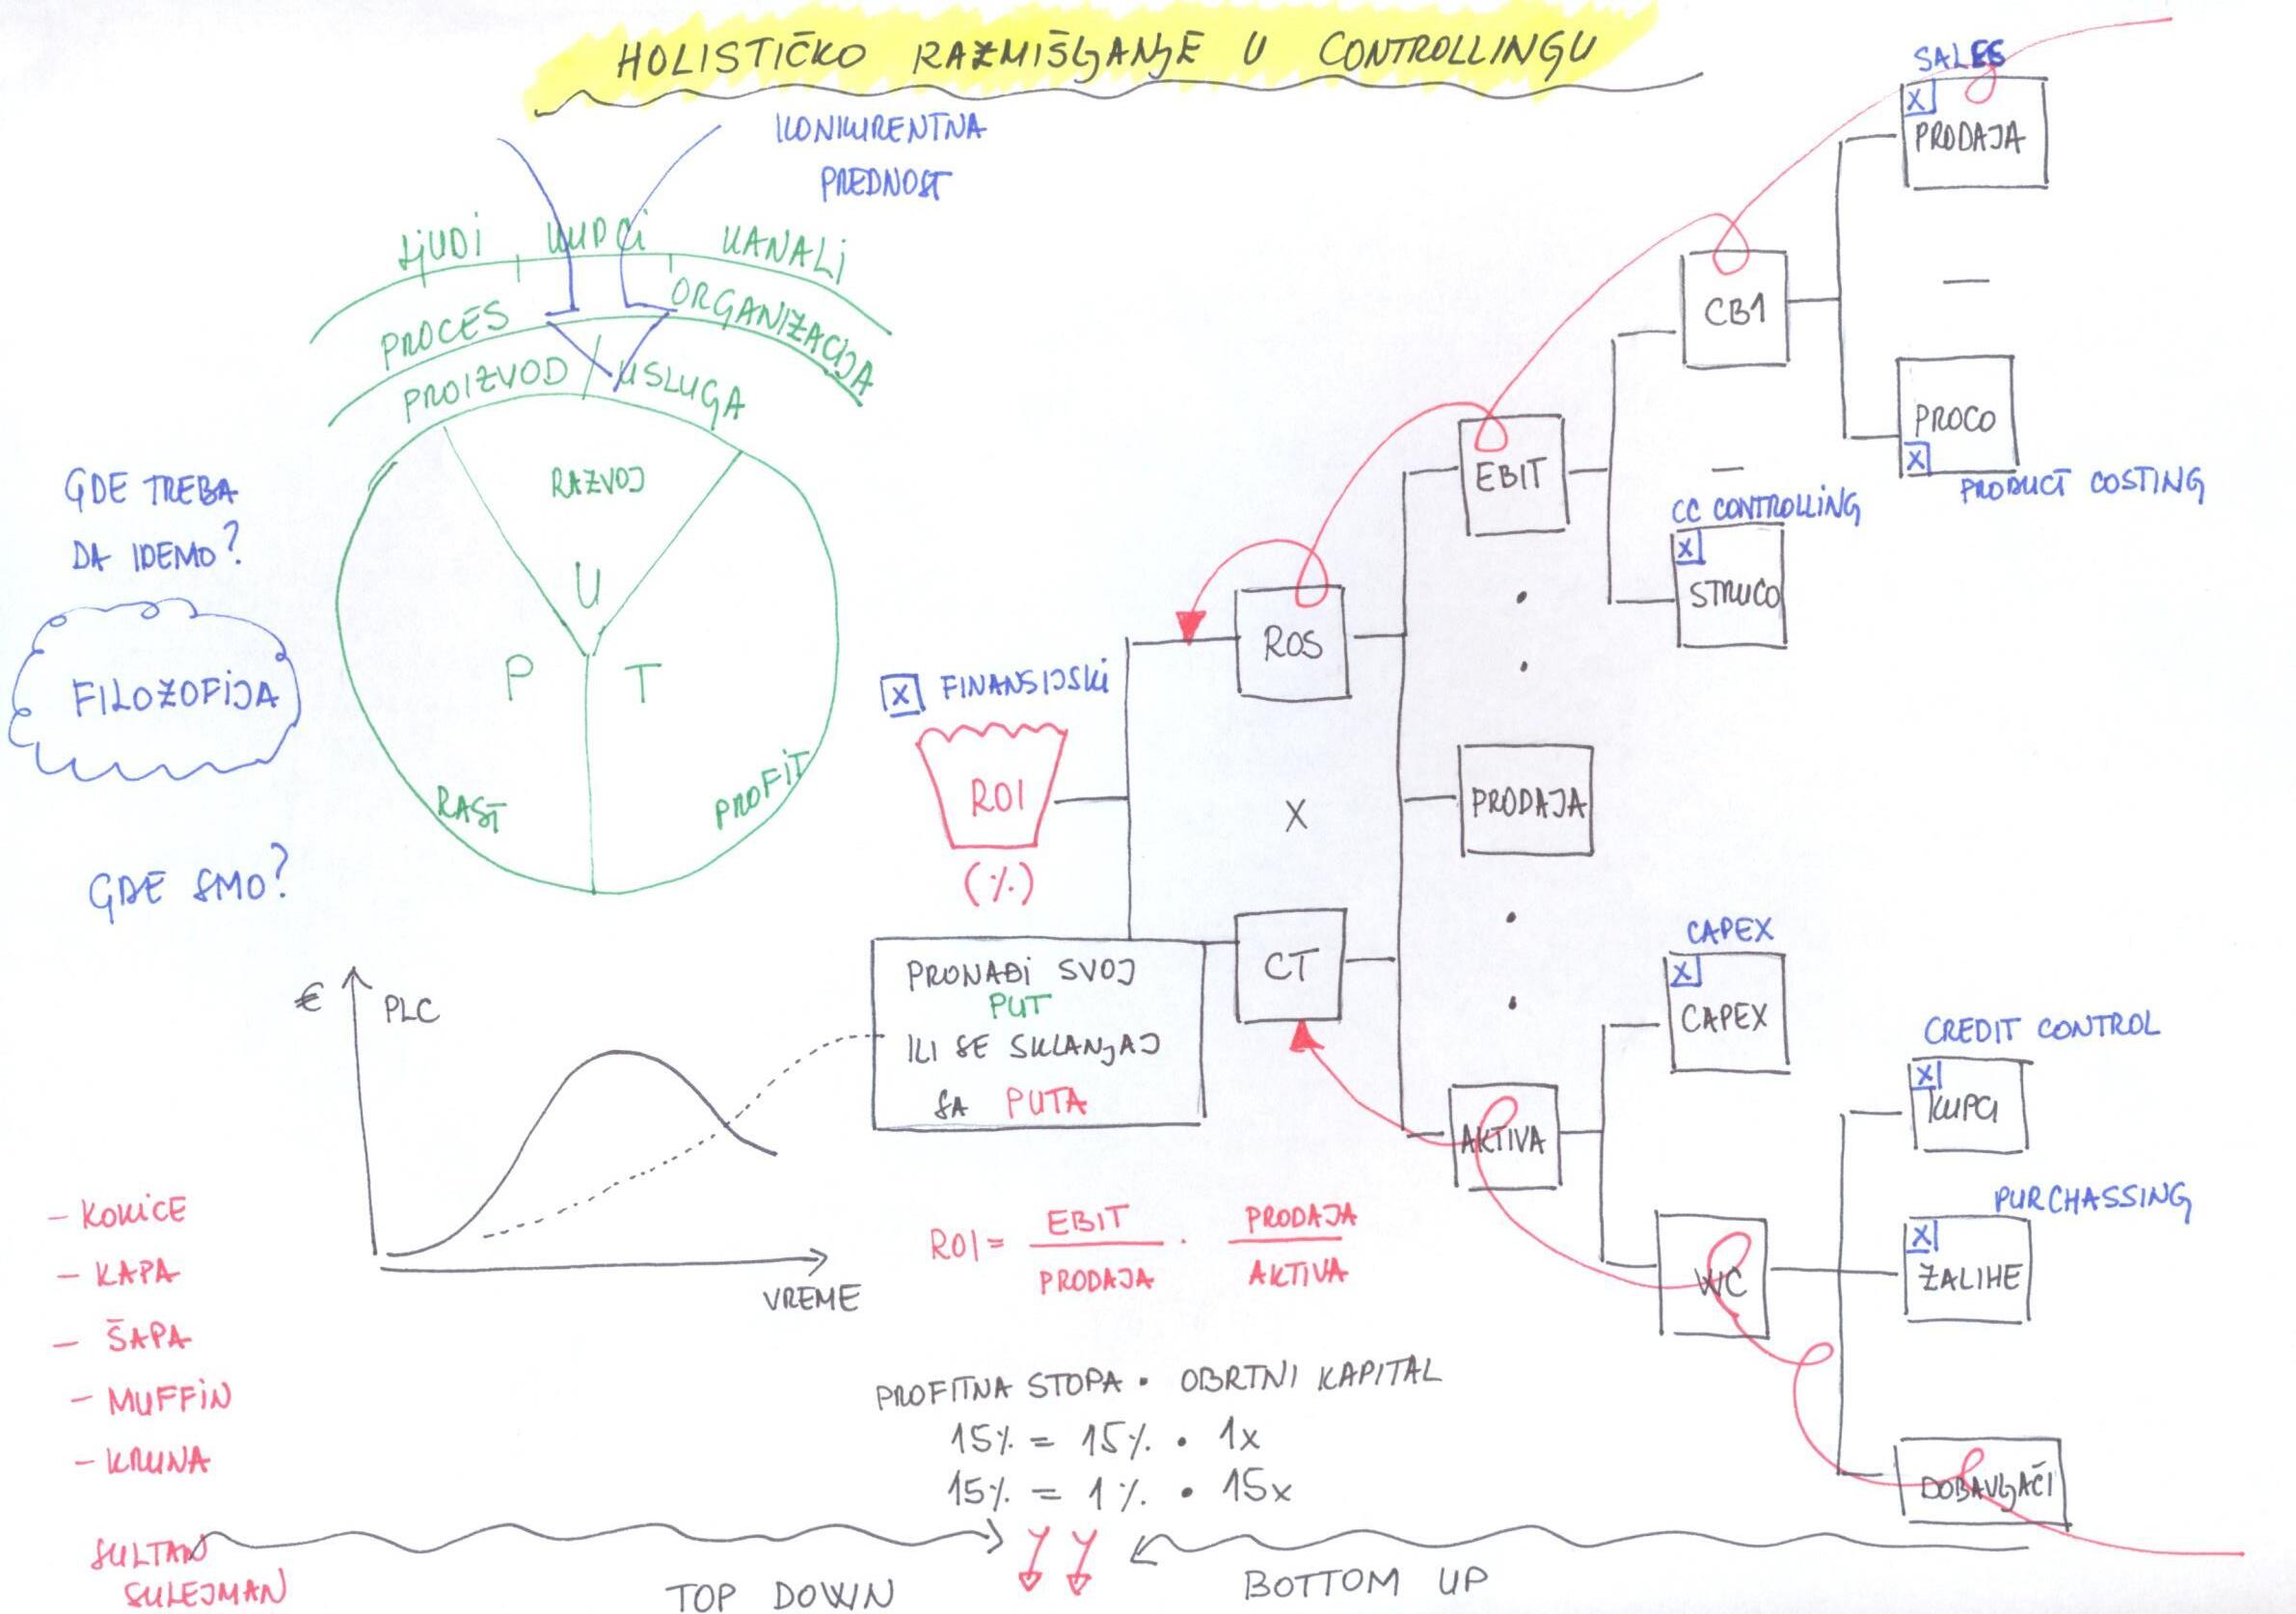 HOLISTIČKO RAZMIŠLJANJE U CONTROLLINGU
KONKURENTNA
PREDNOST
LJUDI KUPCI KANALI
PROCES ORGANIZACIJA
PROIZVOD / USLUGA
RAZVOJ
U
P T
RAST PROFIT
GDE TREBA
DA IDEMO?
FILOZOFIJA
GDE SMO?
€ PLC
VREME
- KOKICE
- KAPA
- ŠAPA
- MUFFIN
- KRUNA
SULTAN
SULEJMAN
X FINANSIJSKI
ROI
(%)
PRONAĐI SVOJ
PUT
ILI SE SKLANJAJ
SA PUTA
ROS
X
CT
EBIT
PRODAJA
AKTIVA
CB1
—
CC CONTROLLING
X
STRUCO
SALES
X
PRODAJA
—
PROCO
X
PRODUCT COSTING
CAPEX
X
CAPEX
WC
CREDIT CONTROL
X
KUPCI
PURCHASSING
X
ZALIHE
DOBAVLJAČI
ROI = EBIT / PRODAJA · PRODAJA / AKTIVA
PROFITNA STOPA · OBRTNI KAPITAL
15% = 15% · 1x
15% = 1% · 15x
TOP DOWN
BOTTOM UP